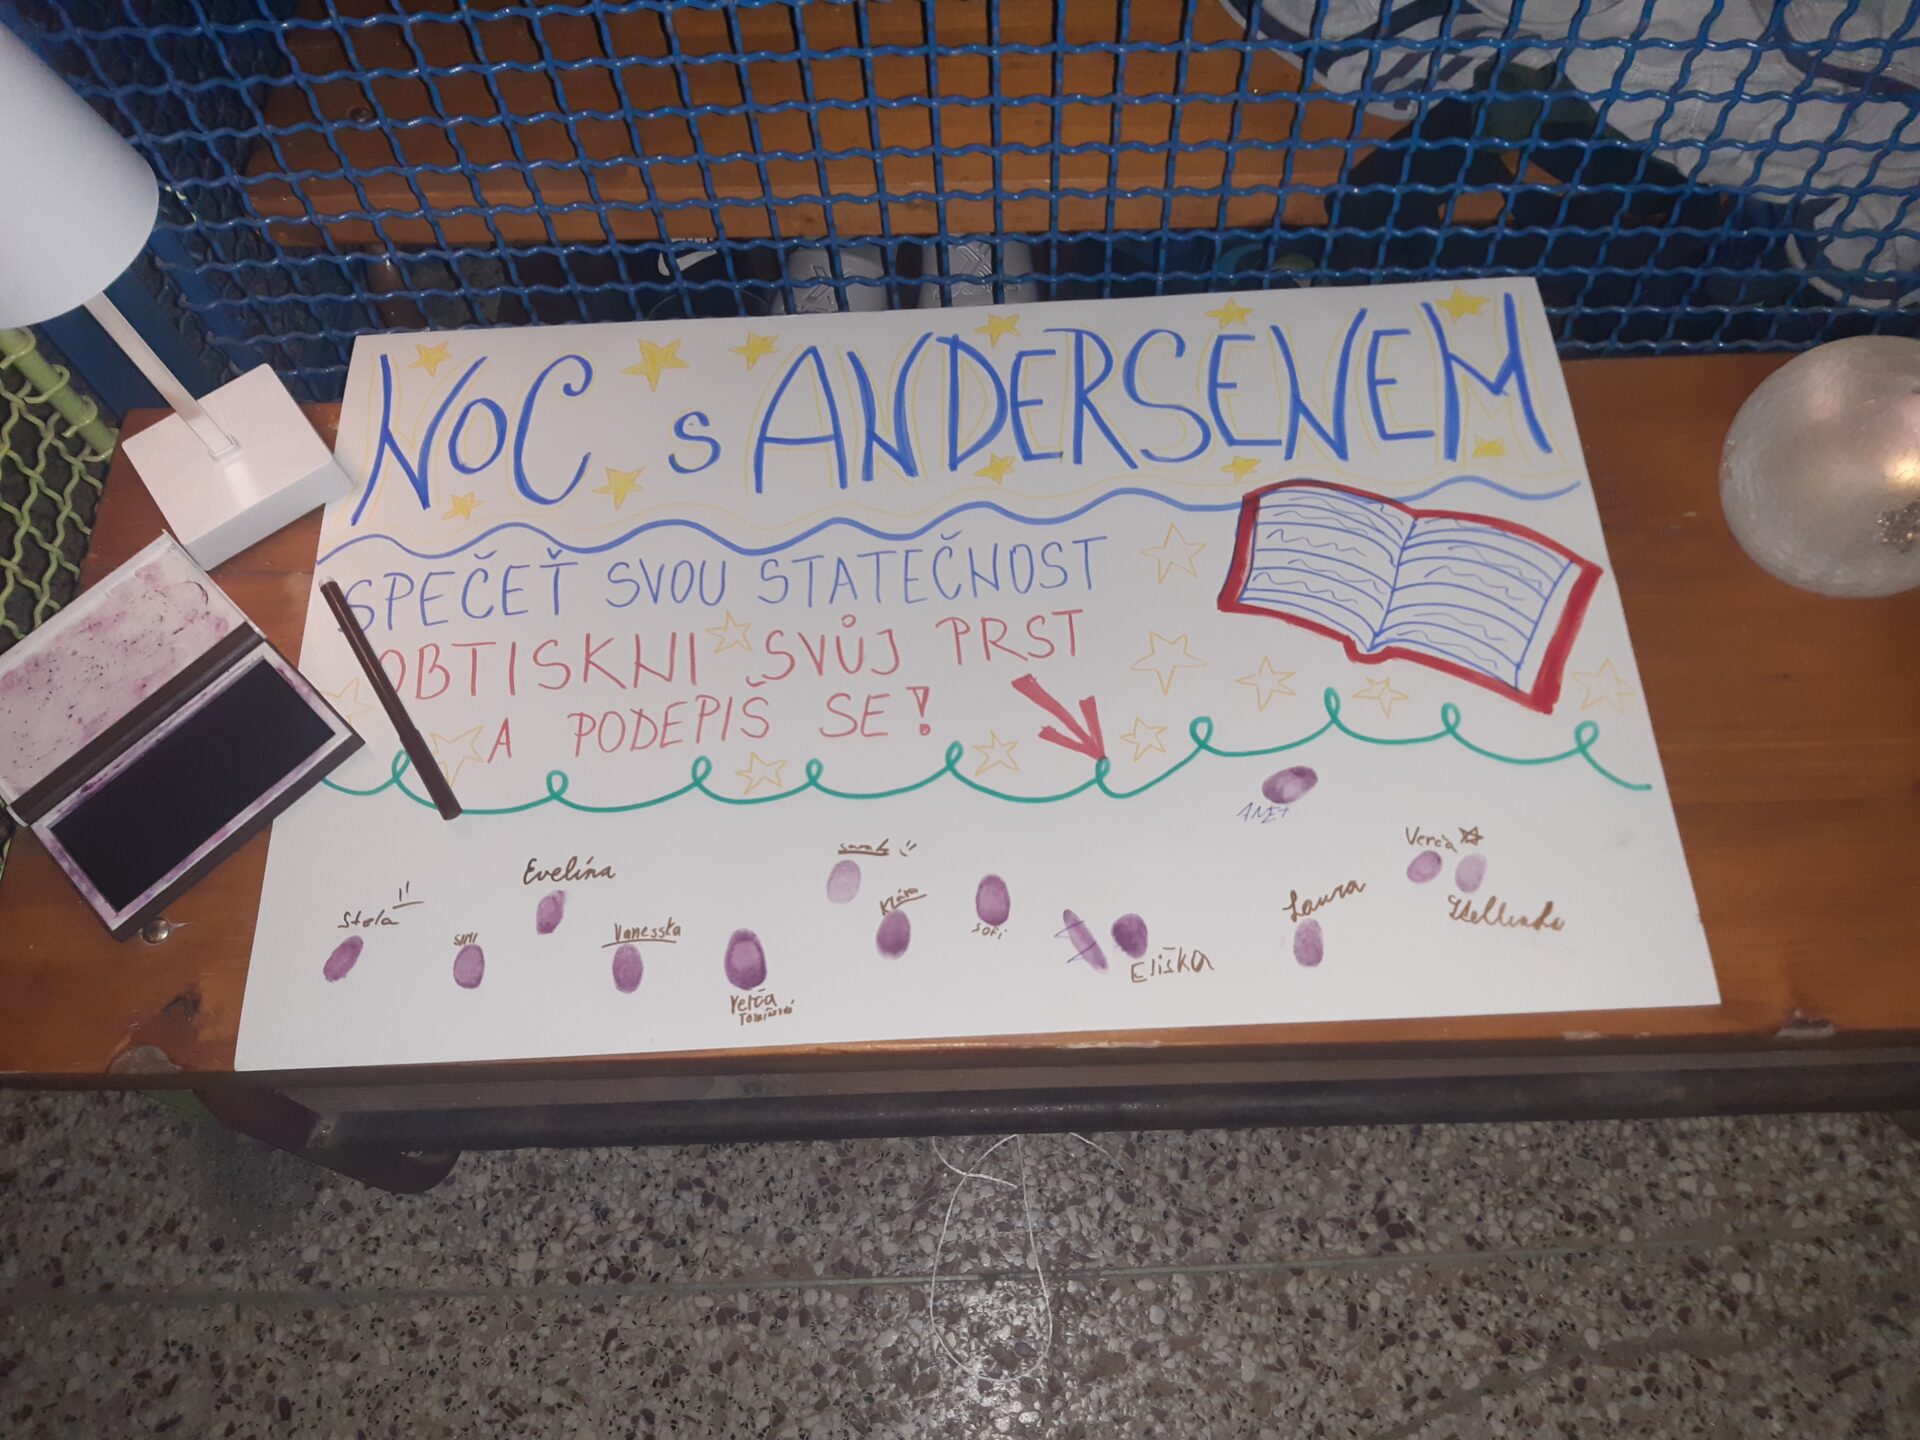 NOC s ANDERSENEM
SPEČEŤ SVOU STATEČNOST
OBTISKNI SVŮJ PRST
A PODEPIŠ SE!
ANET
Verča
Evelína
Laura
Klára
Stela
Vanesska
Sofi
Eliška
Verča